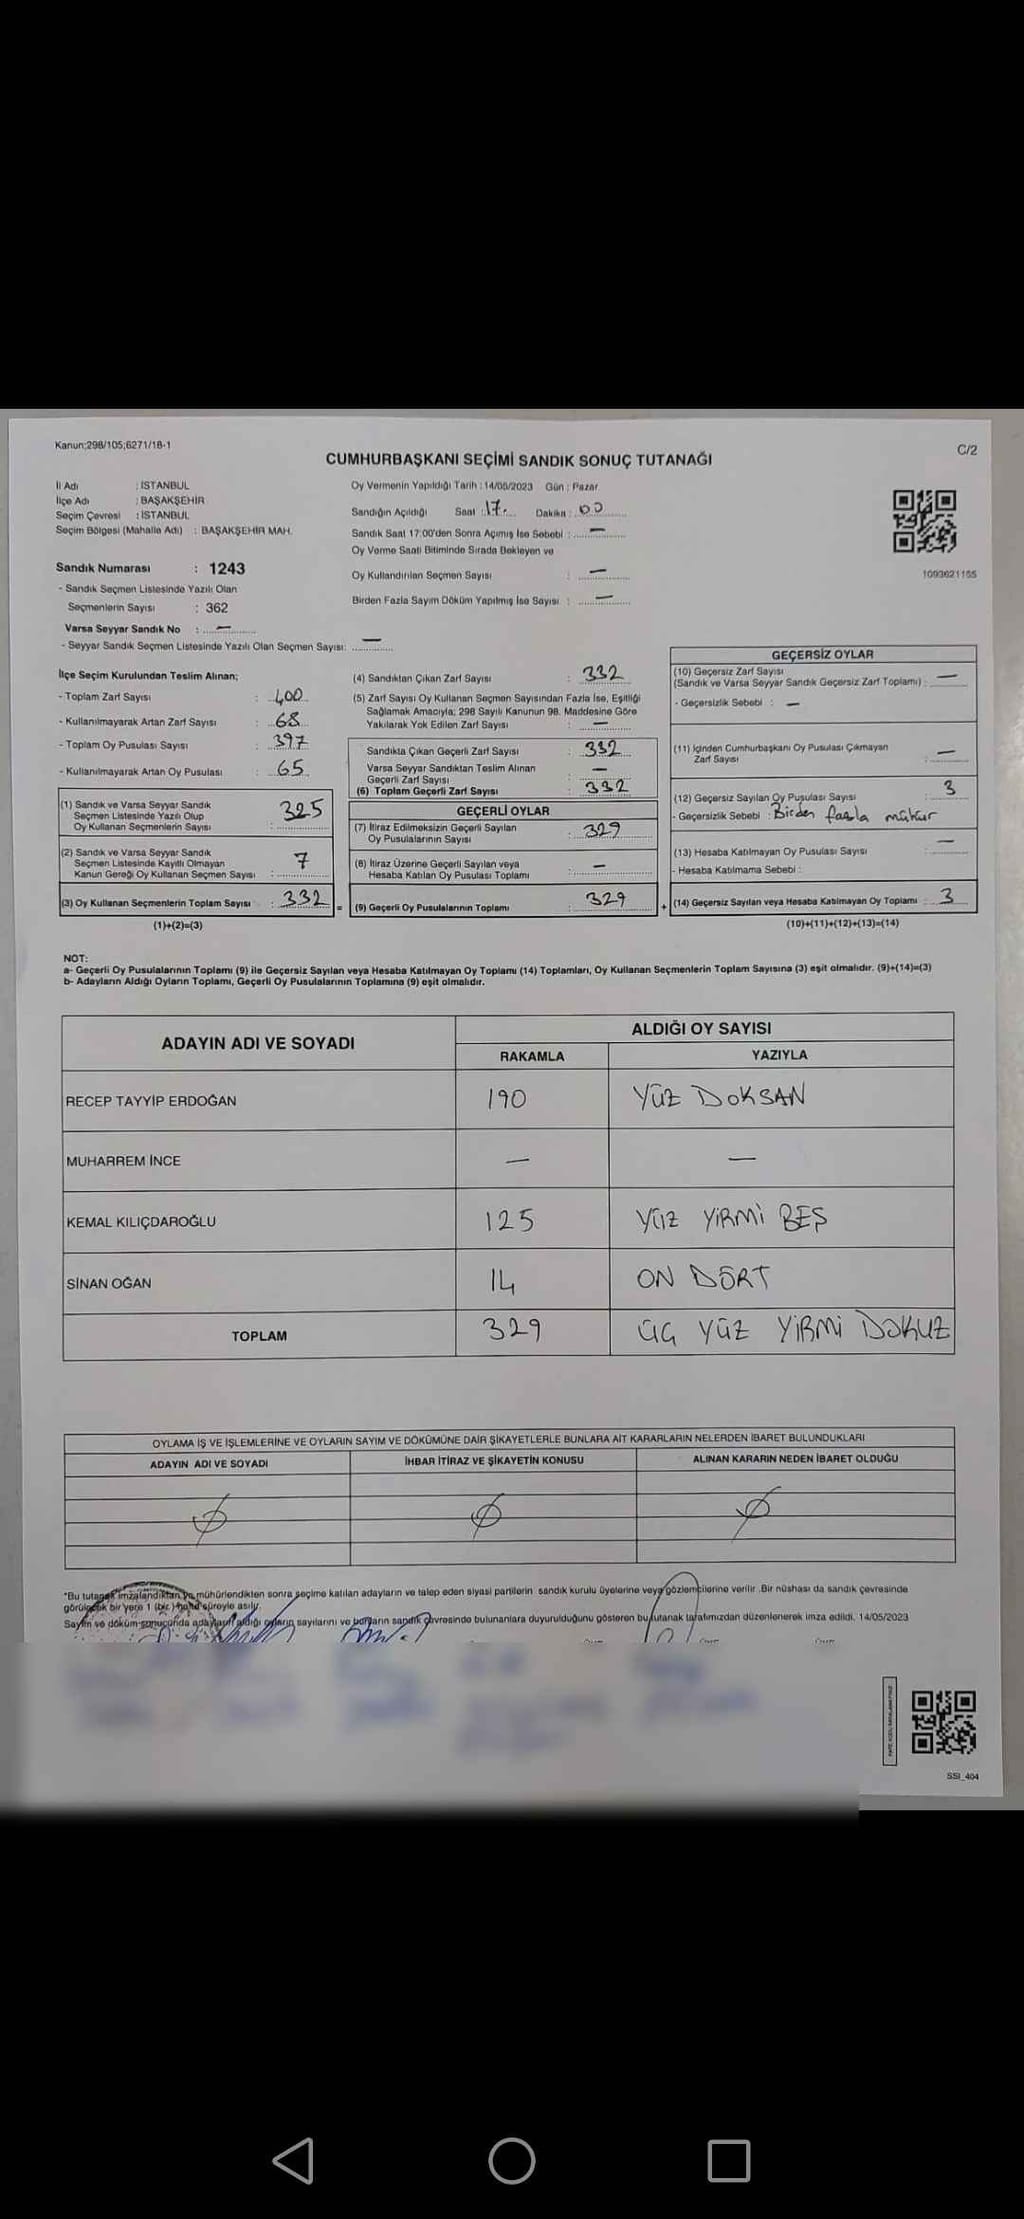 Kanun;298/105;6271/18-1
C/2
CUMHURBAŞKANI SEÇİMİ SANDIK SONUÇ TUTANAĞI
İl Adı : İSTANBUL
İlçe Adı : BAŞAKŞEHİR
Seçim Çevresi : İSTANBUL
Seçim Bölgesi (Mahalle Adı) : BAŞAKŞEHİR MAH.
Oy Vermenin Yapıldığı Tarih : 14/05/2023 Gün : Pazar
Sandığın Açıldığı Saat : 17. Dakika : 00
Sandık Saat 17:00'den Sonra Açımış İse Sebebi : —
Oy Verme Saati Bitiminde Sırada Bekleyen ve
Oy Kullandırılan Seçmen Sayısı : —
Birden Fazla Sayım Döküm Yapılmış İse Sayısı : —
1093621155
Sandık Numarası : 1243
- Sandık Seçmen Listesinde Yazılı Olan
Seçmenlerin Sayısı : 362
Varsa Seyyar Sandık No : —
- Seyyar Sandık Seçmen Listesinde Yazılı Olan Seçmen Sayısı: —
İlçe Seçim Kurulundan Teslim Alınan;
- Toplam Zarf Sayısı : 400
- Kullanılmayarak Artan Zarf Sayısı : 68
- Toplam Oy Pusulası Sayısı : 397
- Kullanılmayarak Artan Oy Pusulası : 65
(1) Sandık ve Varsa Seyyar Sandık
Seçmen Listesinde Yazılı Olup
Oy Kullanan Seçmenlerin Sayısı : 325
(2) Sandık ve Varsa Seyyar Sandık
Seçmen Listesinde Kayıtlı Olmayan
Kanun Gereği Oy Kullanan Seçmen Sayısı : 7
(3) Oy Kullanan Seçmenlerin Toplam Sayısı : 332 =
(1)+(2)=(3)
(4) Sandıktan Çıkan Zarf Sayısı : 332
(5) Zarf Sayısı Oy Kullanan Seçmen Sayısından Fazla İse, Eşitliği
Sağlamak Amacıyla; 298 Sayılı Kanunun 98. Maddesine Göre
Yakılarak Yok Edilen Zarf Sayısı : —
Sandıkta Çıkan Geçerli Zarf Sayısı : 332
Varsa Seyyar Sandıktan Teslim Alınan
Geçerli Zarf Sayısı : —
(6) Toplam Geçerli Zarf Sayısı : 332
GEÇERLİ OYLAR
(7) İtiraz Edilmeksizin Geçerli Sayılan
Oy Pusulalarının Sayısı : 329
(8) İtiraz Üzerine Geçerli Sayılan veya
Hesaba Katılan Oy Pusulası Toplamı : —
(9) Geçerli Oy Pusulalarının Toplamı : 329 +
GEÇERSİZ OYLAR
(10) Geçersiz Zarf Sayısı
(Sandık ve Varsa Seyyar Sandık Geçersiz Zarf Toplamı) : —
- Geçersizlik Sebebi : —
(11) İçinden Cumhurbaşkanı Oy Pusulası Çıkmayan
Zarf Sayısı : —
(12) Geçersiz Sayılan Oy Pusulası Sayısı : 3
- Geçersizlik Sebebi : Birden fazla mühür
(13) Hesaba Katılmayan Oy Pusulası Sayısı : —
- Hesaba Katılmama Sebebi :
(14) Geçersiz Sayılan veya Hesaba Katılmayan Oy Toplamı : 3
(10)+(11)+(12)+(13)=(14)
NOT:
a- Geçerli Oy Pusulalarının Toplamı (9) ile Geçersiz Sayılan veya Hesaba Katılmayan Oy Toplamı (14) Toplamları, Oy Kullanan Seçmenlerin Toplam Sayısına (3) eşit olmalıdır. (9)+(14)=(3)
b- Adayların Aldığı Oyların Toplamı, Geçerli Oy Pusulalarının Toplamına (9) eşit olmalıdır.
ADAYIN ADI VE SOYADI
ALDIĞI OY SAYISI
RAKAMLA YAZIYLA
RECEP TAYYİP ERDOĞAN 190 YÜZ DOKSAN
MUHARREM İNCE — —
KEMAL KILIÇDAROĞLU 125 YÜZ YİRMİ BEŞ
SİNAN OĞAN 14 ON DÖRT
TOPLAM 329 ÜÇ YÜZ YİRMİ DOKUZ
OYLAMA İŞ VE İŞLEMLERİNE VE OYLARIN SAYIM VE DÖKÜMÜNE DAİR ŞİKAYETLERLE BUNLARA AİT KARARLARIN NELERDEN İBARET BULUNDUKLARI
ADAYIN ADI VE SOYADI İHBAR İTİRAZ VE ŞİKAYETİN KONUSU ALINAN KARARIN NEDEN İBARET OLDUĞU
*Bu tutanak imzalandıktan ve mühürlendikten sonra seçime katılan adayların ve talep eden siyasi partilerin sandık kurulu üyelerine veya gözlemcilerine verilir. Bir nüshası da sandık çevresinde
görülecek bir yere 1 (bir) hafta süreyle asılır.
Sayım ve döküm sonucunda adayların aldığı oyların sayılarını ve bunların sandık çevresinde bulunanlara duyurulduğunu gösteren bu tutanak tarafımızdan düzenlenerek imza edildi. 14/05/2023
SSI_404